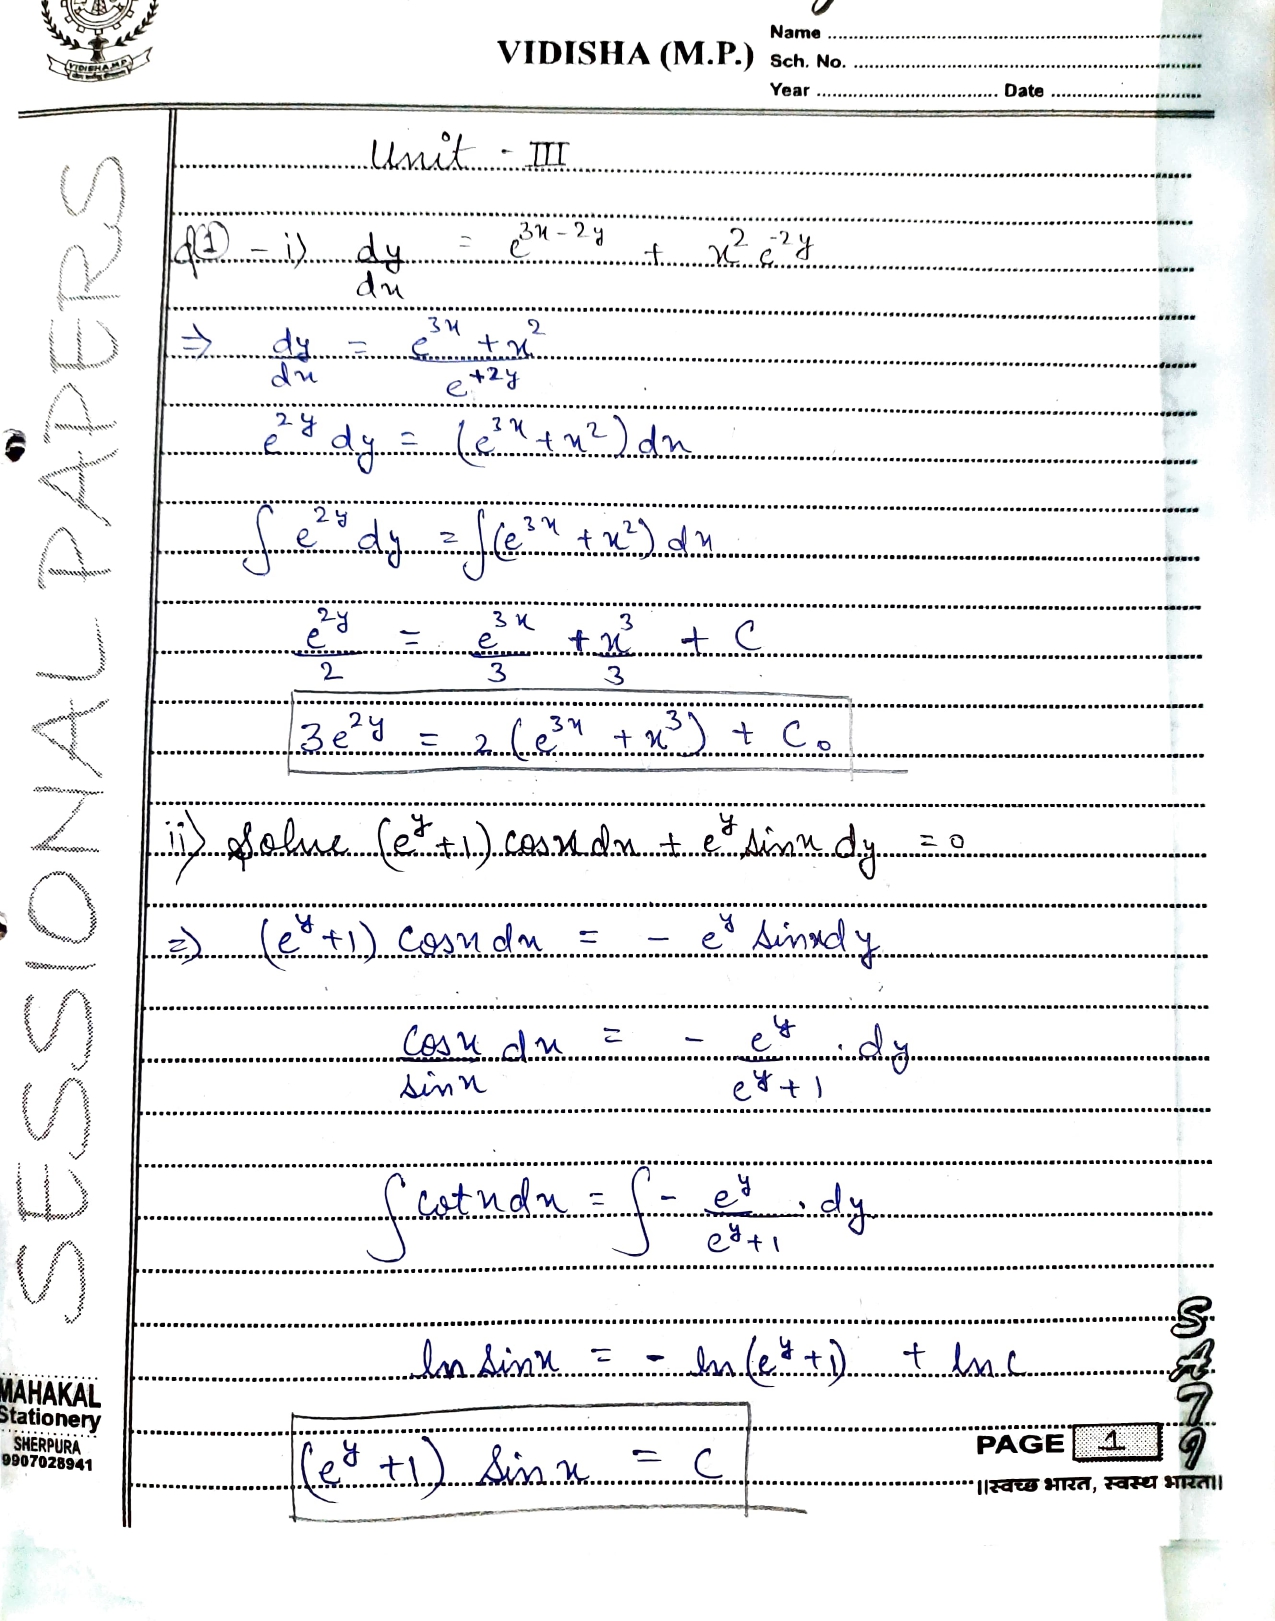 VIDISHA (M.P.)
Name
Sch. No.
Year Date
VIDISHA M.P.
SESSIONAL PAPERS
Unit - III
Q① - i) dy/dx = e^(3x-2y) + x² e^(-2y)
⇒ dy/dx = (e^(3x) + x²)/e^(+2y)
e^(2y) dy = (e^(3x) + x²) dx
∫ e^(2y) dy = ∫(e^(3x) + x²) dx
e^(2y)/2 = e^(3x)/3 + x³/3 + C
3e^(2y) = 2(e^(3x) + x³) + C₀
ii) Solve (e^y + 1) cosx dx + e^y sinx dy = 0
⇒ (e^y + 1) cosx dx = - e^y sinx dy
cosx/sinx dx = - e^y/(e^y + 1) . dy
∫ cotx dx = ∫ - e^y/(e^y + 1) . dy
ln sinx = - ln(e^y + 1) + ln c
(e^y + 1) sin x = C
MAHAKAL
Stationery
SHERPURA
9907028941
PAGE 1
||स्वच्छ भारत, स्वस्थ भारत||
SA79